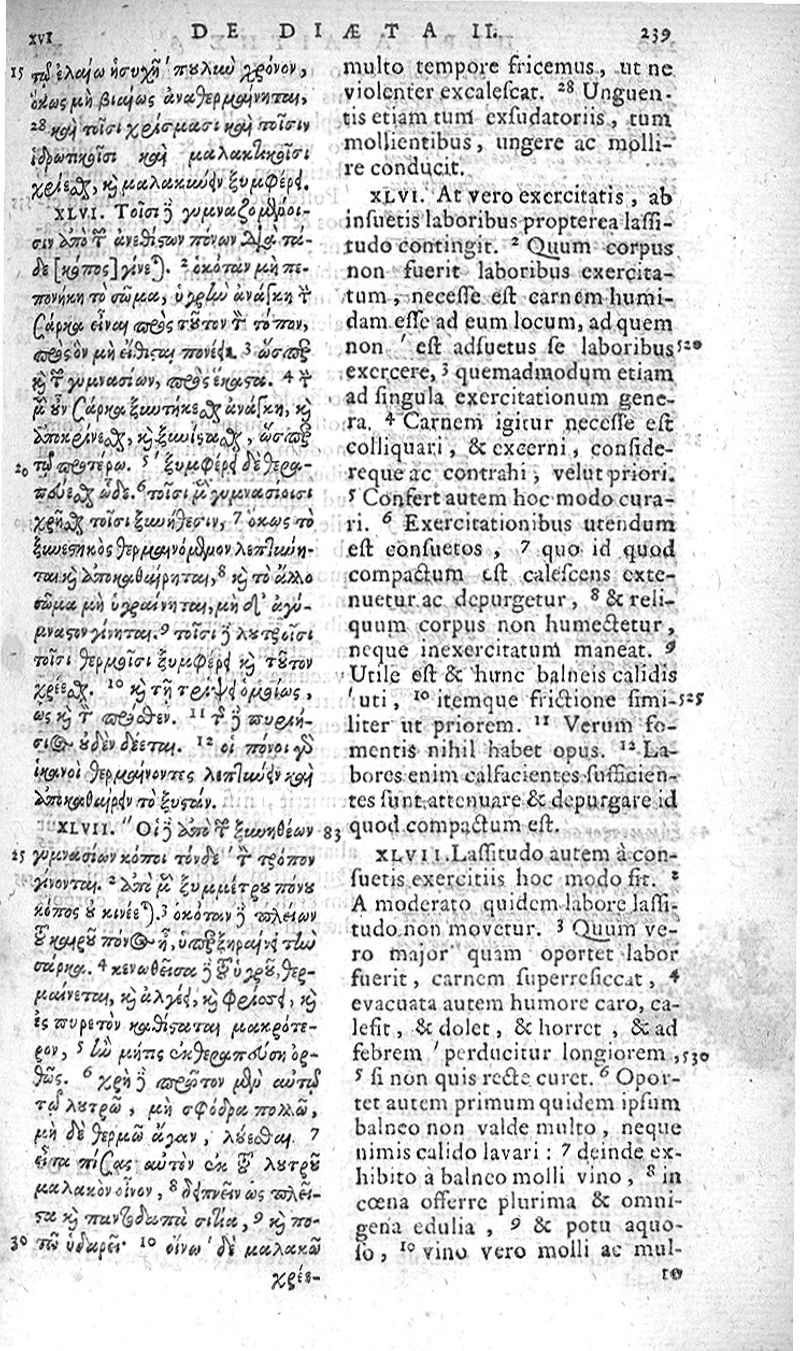 XVI DE DIÆTA II. 239
15 τῷ ἐλαίῳ ἡσυχῆ ʹπουλιὺ χρόνον,
ὅκως μὴ βιαίως ἀναθερμαίνηται,
28 καὶ τοῖσι χρίσμασι καὶ τοῖσιν
ἱδρωτικοῖσι καὶ μαλακτικοῖσι
χρίεσθαι, καὶ μαλακιύειν ξυμφέρει.
XLVI. Τοῖσι δὲ γυμναζομένοι-
σιν ἀπὸ τῶν ἀνεθίστων πόνων διὰ τά-
δε [κόπος] γίνεται. 2 ὁκόταν μὴ πε-
πονήκη τὸ σῶμα, ὑγρὴν ἀνάγκη τὴν
σάρκα εἶναι πρὸς τοῦτον τὸν τόπον,
πρὸς ὃν μὴ εἴθισται πονέειν. 3 ὥσπερ
καὶ τῶν γυμνασίων, πρὸς ἕκαστα. 4 τὴν
μὲν οὖν σάρκα ξυντήκεσθαι ἀνάγκη, καὶ
ἀποκρίνεσθαι, καὶ ξυνίστασθαι, ὥσπερ
20 τῷ προτέρῳ. 5 ʹξυμφέρει δὲ θερα-
πεύεσθαι ὧδε. 6 τοῖσι μὲν γυμνασίοισι
χρῆσθαι τοῖσι ξυνήθεσιν, 7 ὅκως τὸ
ξυνεστηκὸς θερμαινόμενον λεπτύνη-
ται καὶ ἀποκαθαίρηται, 8 καὶ τὸ ἄλλο
σῶμα μὴ ὑγραίνηται, μὴ δʹ ἀγύ-
μναστον γίνηται. 9 τοῖσι δὲ λουτροῖσι
τοῖσι θερμοῖσι ξυμφέρει καὶ τοῦτον
χρέεσθαι. 10 καὶ τῇ τρίψει ὁμοίως,
ὡς καὶ τὸν πρόσθεν. 11 τῶν δὲ πυριή-
σιος οὐδὲν δέεται. 12 οἱ πόνοι γὰρ
ἱκανοὶ θερμαίνοντες λεπτύνειν καὶ
ἀποκαθαίρειν τὸ ξυστάν.
XLVII. "Οἱ δὲ ἀπὸ τῶν ξυνηθέων 83
25 γυμνασίων κόποι τόνδε τὸν τρόπον
γίνονται. 2 ἀπὸ μὲν ξυμμέτρου πόνου
κόπος οὐ κινέεται. 3 ὁκόταν δὲ πλείων
τοῦ καιροῦ πόνος ᾖ, ὑπερξηραίνει τὴν
σάρκα. 4 κενωθεῖσα δὲ τοῦ ὑγροῦ, θερ-
μαίνεται, καὶ ἀλγέει, καὶ φρίσσει, καὶ
ἐς πυρετὸν καθίσταται μακρότε-
ρον, 5 ἢν μήτις ἐκθεραπεύση ὀρ-
θῶς. 6 χρὴ δὲ πρῶτον μὲν αὐτὸν
τῷ λουτρῷ, μὴ σφόδρα πολλῷ,
μὴ δὲ θερμῷ ἄγαν, λούεσθαι. 7
εἶτα πίσας αὐτὸν ἐκ τοῦ λουτροῦ
μαλακὸν οἶνον, 8 δειπνεῖν ὡς πλεῖ-
στα καὶ παντοδαπὰ σιτία, 9 καὶ πο-
30 τῷ ὑδαρεῖ· 10 οἴνῳ ʹδὲ μαλακῷ
χρέε-
multo tempore fricemus, ut ne
violenter excalescat. 28 Unguen-
tis etiam tum exsudatoriis, tum
mollientibus, ungere ac molli-
re conducit.
XLVI. At vero exercitatis, ab
insuetis laboribus propterea lassi-
tudo contingit. 2 Quum corpus
non fuerit laboribus exercita-
tum, necesse est carnem humi-
dam esse ad eum locum, ad quem
non ʹest adsuetus se laboribus 520
exercere, 3 quemadmodum etiam
ad singula exercitationum gene-
ra. 4 Carnem igitur necesse est
colliquari, & excerni, conside-
reque ac contrahi; velut priori.
5 Confert autem hoc modo cura-
ri. 6 Exercitationibus utendum
est consuetos, 7 quo id quod
compactum est calescens exte-
nuetur ac depurgetur, 8 & reli-
quum corpus non humectetur,
neque inexercitatum maneat. 9
Utile est & hunc balneis calidis
ʹuti, 10 itemque frictione simi- 525
liter ut priorem. 11 Verum fo-
mentis nihil habet opus. 12 La-
bores enim calfacientes sufficien-
tes sunt attenuare & depurgare id
quod compactum est.
XLVII. Lassitudo autem à con-
suetis exercitiis hoc modo fit. 2
A moderato quidem labore lassi-
tudo non movetur. 3 Quum ve-
ro major quam oportet labor
fuerit, carnem superresiccat, 4
evacuata autem humore caro, ca-
lefit, & dolet, & horret, & ad
febrem ʹperducitur longiorem, 530
5 si non quis recte curet. 6 Opor-
tet autem primum quidem ipsum
balneo non valde multo, neque
nimis calido lavari: 7 deinde ex-
hibito à balneo molli vino, 8 in
cœna offerre plurima & omni-
gena edulia, 9 & potu aquo-
so, 10 vino vero molli ac mul-
to